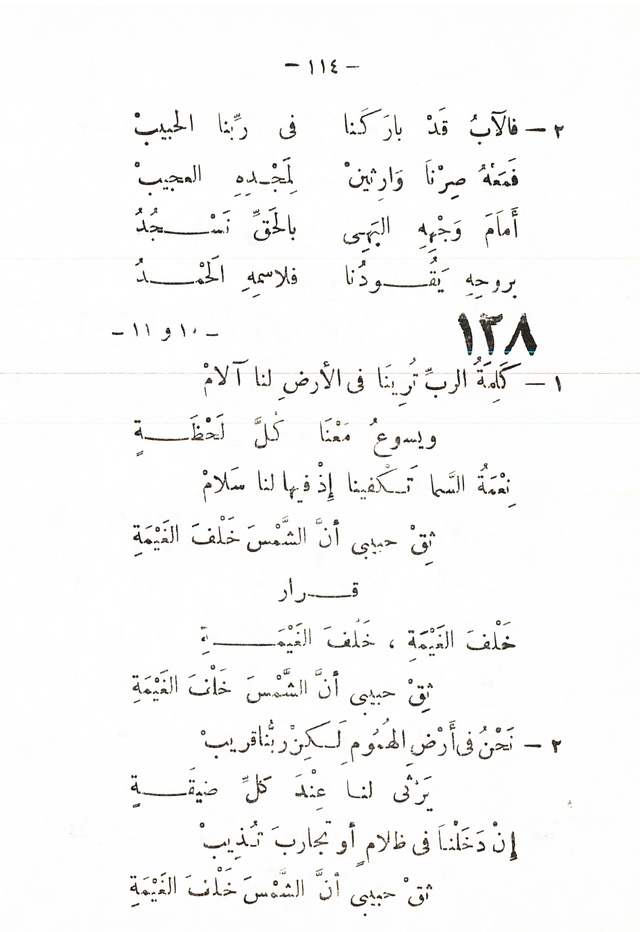 – ١١٤ –
٢ – فالآبُ قَدْ بارَكَنا فى رَبِّنا الحبيبْ
فَمَعْهُ صِرْنَا وَارِثينْ لِمَجْـدِهِ العجيبْ
أَمَامَ وَجْهِهِ البَهِى بالحَقِّ نَسْـــجُدُ
بروحِهِ يَقُـــودُنا فلاسمِهِ الحَمْـــدُ
١٣٨ – ١٠ و ١١ –
١ – كَلِمَةُ الربِّ تُرِينَا فى الأرضِ لنا آلامْ
ويسوعُ مَعْنَا كُلَّ لَحْظَـــةٍ
نِعْمَةُ السَّما تَـكْفينا إِذْ فيها لنا سَلامْ
ثِقْ حبيبى أنَّ الشَّمْسَ خَلْفَ الغَيْمَةِ
قـــرار
خَلْفَ الغَيْمَةِ ، خَلْفَ الغَيْمَـــةِ
ثِقْ حبيبى أنَّ الشَّمْسَ خَلْفَ الغَيْمَةِ
٢ – نَحْنُ فى أَرْضِ الهُمُومِ لَـكِنْ ربُّنا قريبْ
يَرْثى لنـا عِنْدَ كلِّ ضيقَـــةٍ
إِنْ دَخَلْنـَا فى ظلامٍ أو تجاربَ تُذِيبْ
ثِقْ حبيبى أنَّ الشَّمْسَ خَلْفَ الغَيْمَةِ